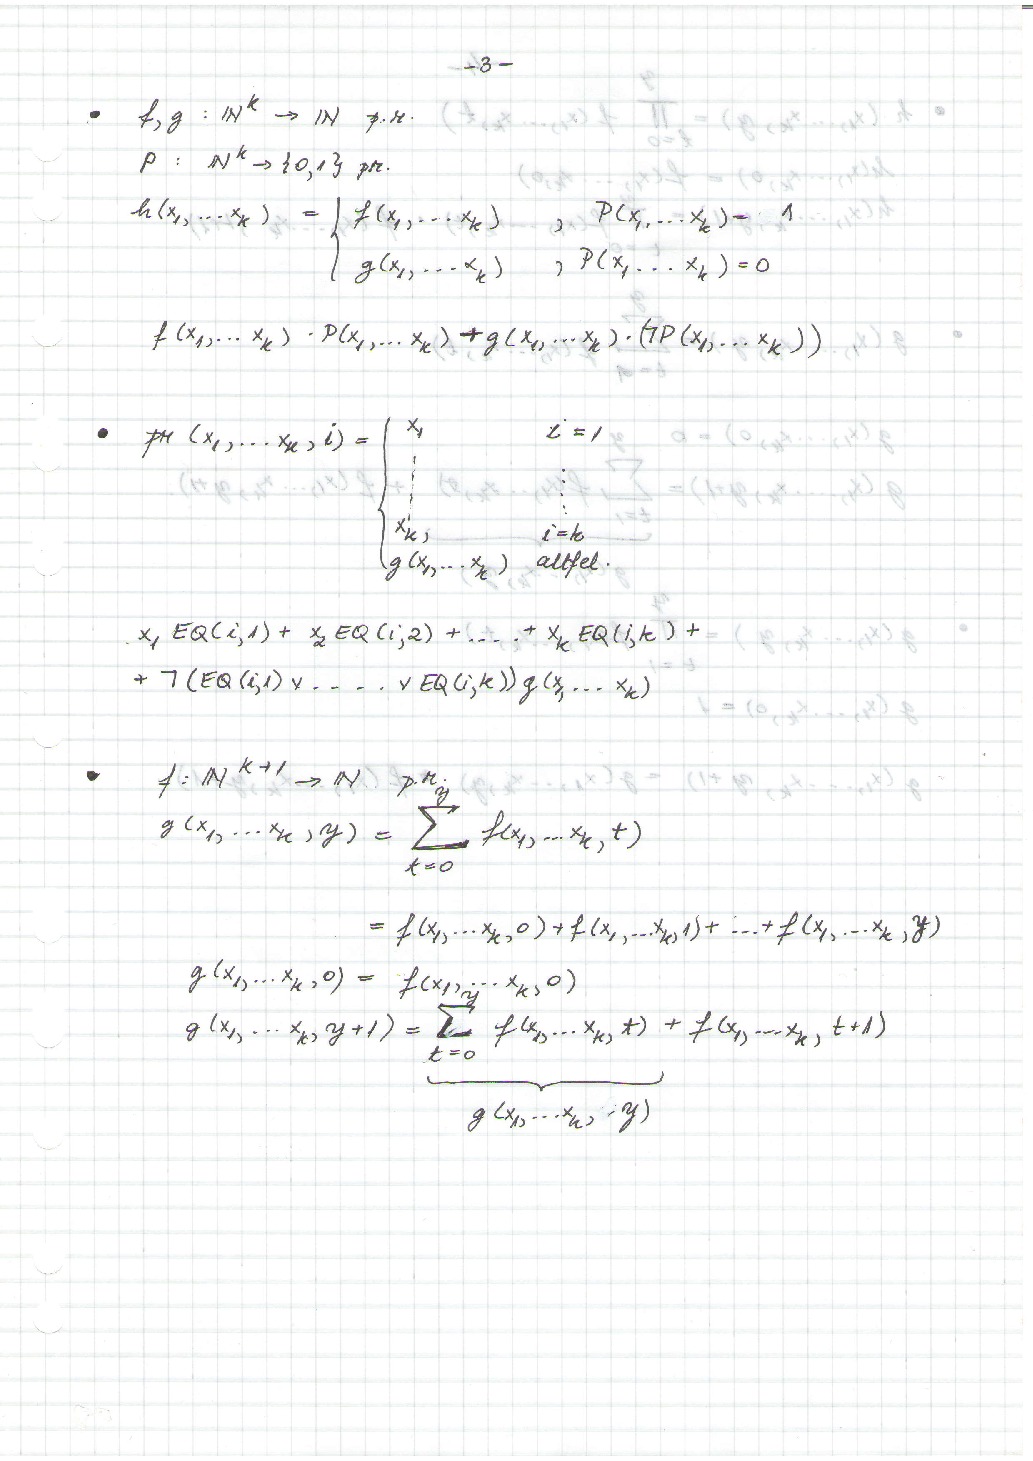 -3-
• f, g : ℕ^k → ℕ p.r.
P : ℕ^k → {0,1} pr.
h(x₁, ... xₖ) = { f(x₁, ... xₖ) , P(x₁, ... xₖ) = 1
g(x₁, ... xₖ) , P(x₁ ... xₖ) = 0
f(x₁, ... xₖ) · P(x₁, ... xₖ) + g(x₁, ... xₖ) · (¬P(x₁, ... xₖ))
• pr (x₁, ... xₖ, i) = { x₁ i = 1
⋮ ⋮
xₖ, i = k
g(x₁, ... xₖ) altfel.
x₁ EQ(i,1) + x₂ EQ(i,2) + .... + xₖ EQ(i,k) +
+ ¬(EQ(i,1) ∨ ..... ∨ EQ(i,k)) g(x₁, ... xₖ)
• f : ℕ^{k+1} → ℕ p.r.
g(x₁, ... xₖ, y) = ∑_{t=0}^{y} f(x₁, ... xₖ, t)
= f(x₁, ... xₖ, 0) + f(x₁, ... xₖ, 1) + ... + f(x₁, ... xₖ, y)
g(x₁, ... xₖ, 0) = f(x₁, ... xₖ, 0)
g(x₁, ... xₖ, y+1) = ∑_{t=0}^{y} f(x₁, ... xₖ, t) + f(x₁, ... xₖ, t+1)
g(x₁, ... xₖ, y)